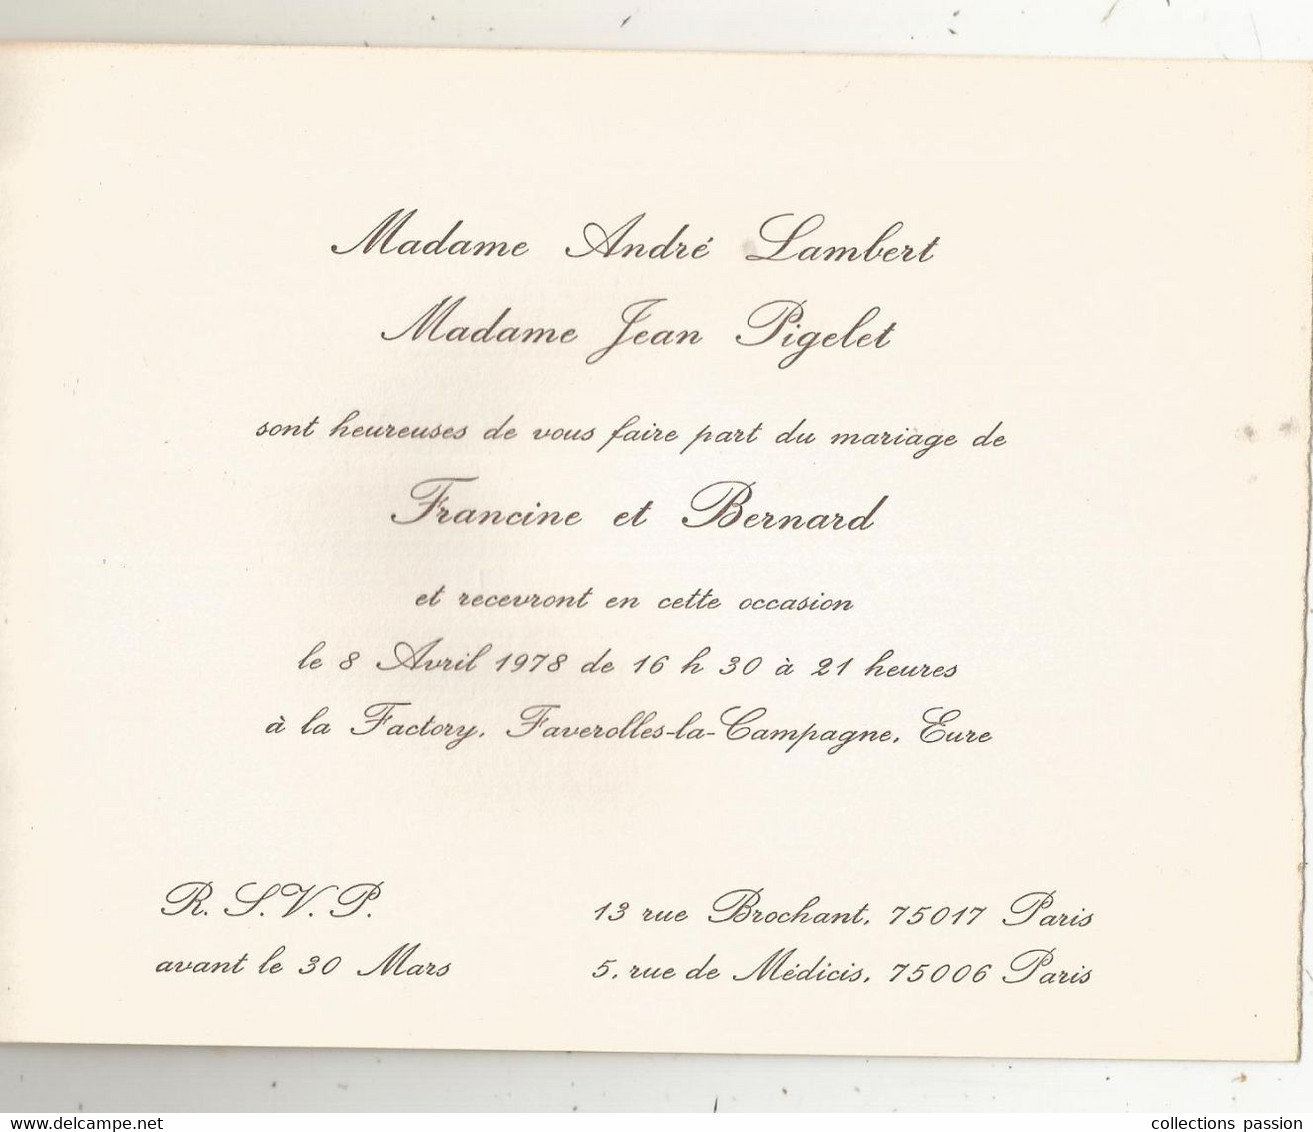 Madame André Lambert
Madame Jean Pigelet
sont heureuses de vous faire part du mariage de
Francine et Bernard
et recevront en cette occasion
le 8 Avril 1978 de 16 h 30 à 21 heures
à la Factory, Faverolles-la-Campagne, Eure
R. S. V. P.
avant le 30 Mars
13 rue Brochant, 75017 Paris
5, rue de Médicis, 75006 Paris
collections passion